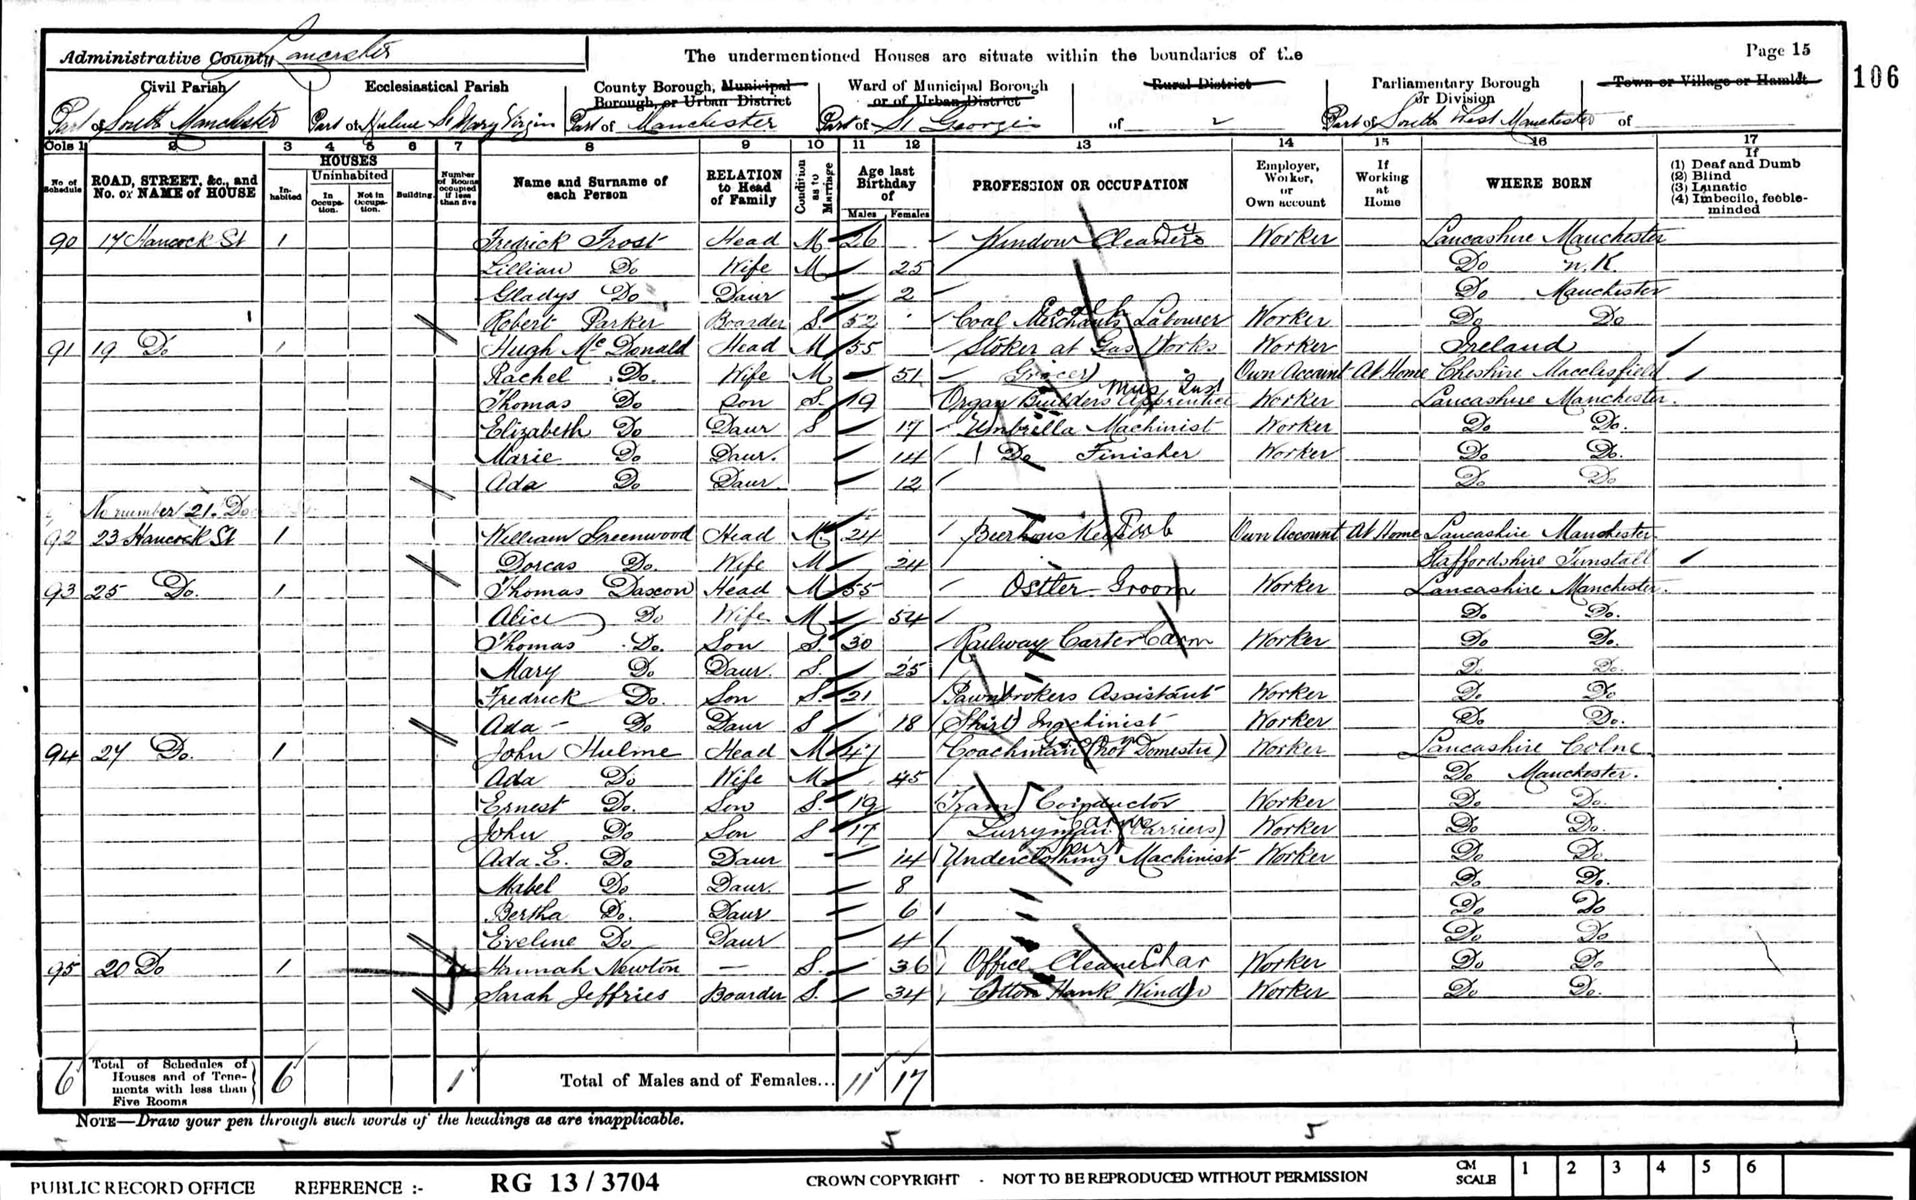 Administrative County Lancaster
The undermentioned Houses are situate within the boundaries of the
Page 15
106
Civil Parish
Ecclesiastical Parish
County Borough, Municipal Borough, or Urban District
Ward of Municipal Borough or of Urban District
Rural District
Parliamentary Borough or Division
Town or Village or Hamlet
Part of South Manchester
Part of Hulme St Mary Virgin
Part of Manchester
Part of St Georges
of
Part of South West Manchester
of
Cols 1 2 3 4 5 6 7 8 9 10 11 12 13 14 15 16 17
No of Schedule
ROAD, STREET, &c., and No. or NAME of HOUSE
HOUSES
Inhabited
Uninhabited
In Occupation.
Not in Occupation.
Building.
Number of Rooms occupied if less than five
Name and Surname of each Person
RELATION to Head of Family
Condition as to Marriage
Age last Birthday of
Males Females
PROFESSION OR OCCUPATION
Employer, Worker, or Own account
If Working at Home
WHERE BORN
If
(1) Deaf and Dumb
(2) Blind
(3) Lunatic
(4) Imbecile, feeble-minded
90 17 Hancock St 1 Fredrick Frost Head M 26 Window Cleaner Worker Lancashire Manchester
Lillian Do Wife M 25 Do n.K.
Gladys Do Daur 2 Do Manchester
Robert Parker Boarder S. 52 Coal Merchants Labourer Worker Do Do
91 19 Do 1 Hugh Mc Donald Head M 55 Stoker at Gas Works Worker Ireland
Rachel Do. Wife M 51 Grocer Own Account At Home Cheshire Macclesfield
Thomas Do Son S. 19 Organ Builders Apprentice Mus Inst Worker Lancashire Manchester.
Elizabeth Do Daur S 17 Umbrella Machinist Worker Do Do.
Marie Do Daur. 14 Do Finisher Worker Do Do.
Ada Do Daur. 12 Do Do
No number 21. Do
92 23 Hancock St 1 William Greenwood Head M. 24 Beerhouse Keeper Pub Own Account At Home Lancashire Manchester.
Dorcas Do. Wife M 24 Staffordshire Tunstall
93 25 Do. 1 Thomas Daxon Head M 55 Ostler Groom Worker Lancashire Manchester.
Alice Do Wife M 54 Do Do.
Thomas Do. Son S. 30 Railway Carter Carm Worker Do Do.
Mary Do Daur. S. 25 Do Do.
Fredrick Do. Son S 21 Pawnbrokers Assistant Worker Do Do
Ada Do Daur S 18 (Shirt) Machinist Worker Do Do.
94 27 Do. 1 John Hulme Head M 47 Coachman (not Domestic) Worker Lancashire Colne
Ada Do Wife M. 45 Do Manchester.
Ernest Do. Son S. 19 Tram Conductor Worker Do Do.
John Do Son S 17 Lurryman (Carriers) Worker Do Do.
Ada E. Do Daur 14 Underclothing Machinist Worker Do Do
Mabel Do Daur. 8 Do Do.
Bertha Do. Daur 6 Do Do
Eveline Do Daur 4 Do Do
95 20 Do 1 Hannah Newton — S. 36 Office Cleaner Char Worker Do Do
Sarah Jeffries Boarder S. 34 Cotton Hank Winder Worker Do Do.
6 Total of Schedules of Houses and of Tenements with less than Five Rooms 6 1 Total of Males and of Females... 11 17
NOTE—Draw your pen through such words of the headings as are inapplicable.
5
PUBLIC RECORD OFFICE REFERENCE :- RG 13 / 3704 CROWN COPYRIGHT - NOT TO BE REPRODUCED WITHOUT PERMISSION
CM SCALE 1 2 3 4 5 6